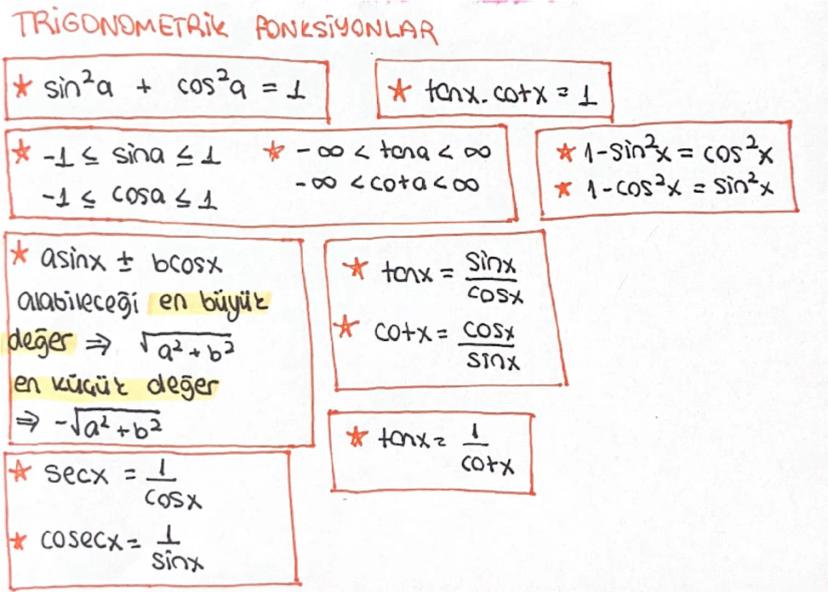 TRİGONOMETRİK FONKSİYONLAR
* sin²a + cos²a = 1
* tanx . cotx = 1
* -1 ≤ sina ≤ 1
-1 ≤ cosa ≤ 1
* -∞ < tana < ∞
-∞ < cota < ∞
* 1-sin²x = cos²x
* 1-cos²x = sin²x
* asinx ± bcosx
alabileceği en büyük
değer ⇒ √(a²+b²)
en küçük değer
⇒ -√(a²+b²)
* tanx = sinx/cosx
* cotx = cosx/sinx
* tanx = 1/cotx
* secx = 1/cosx
* cosecx = 1/sinx